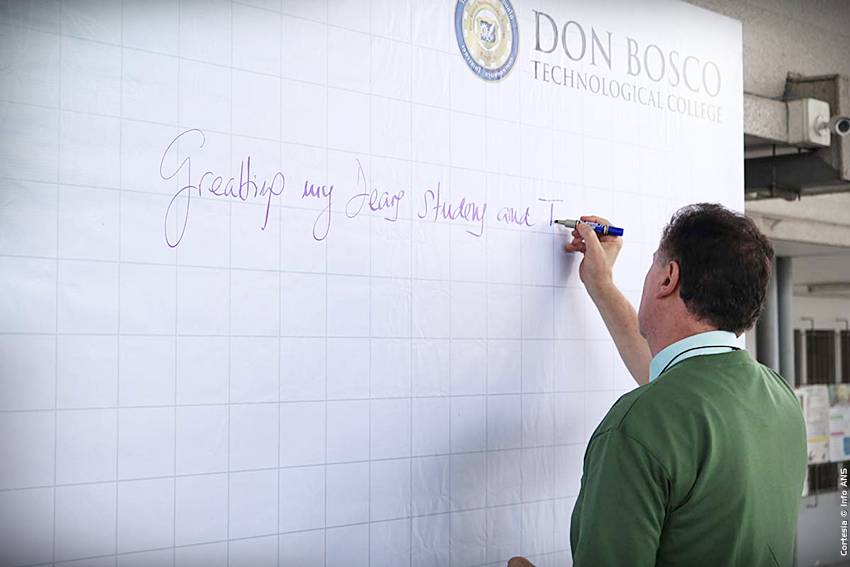 DON BOSCO
TECHNOLOGICAL COLLEGE
Greatting my Dears Students and T
Cortesia © Info ANS